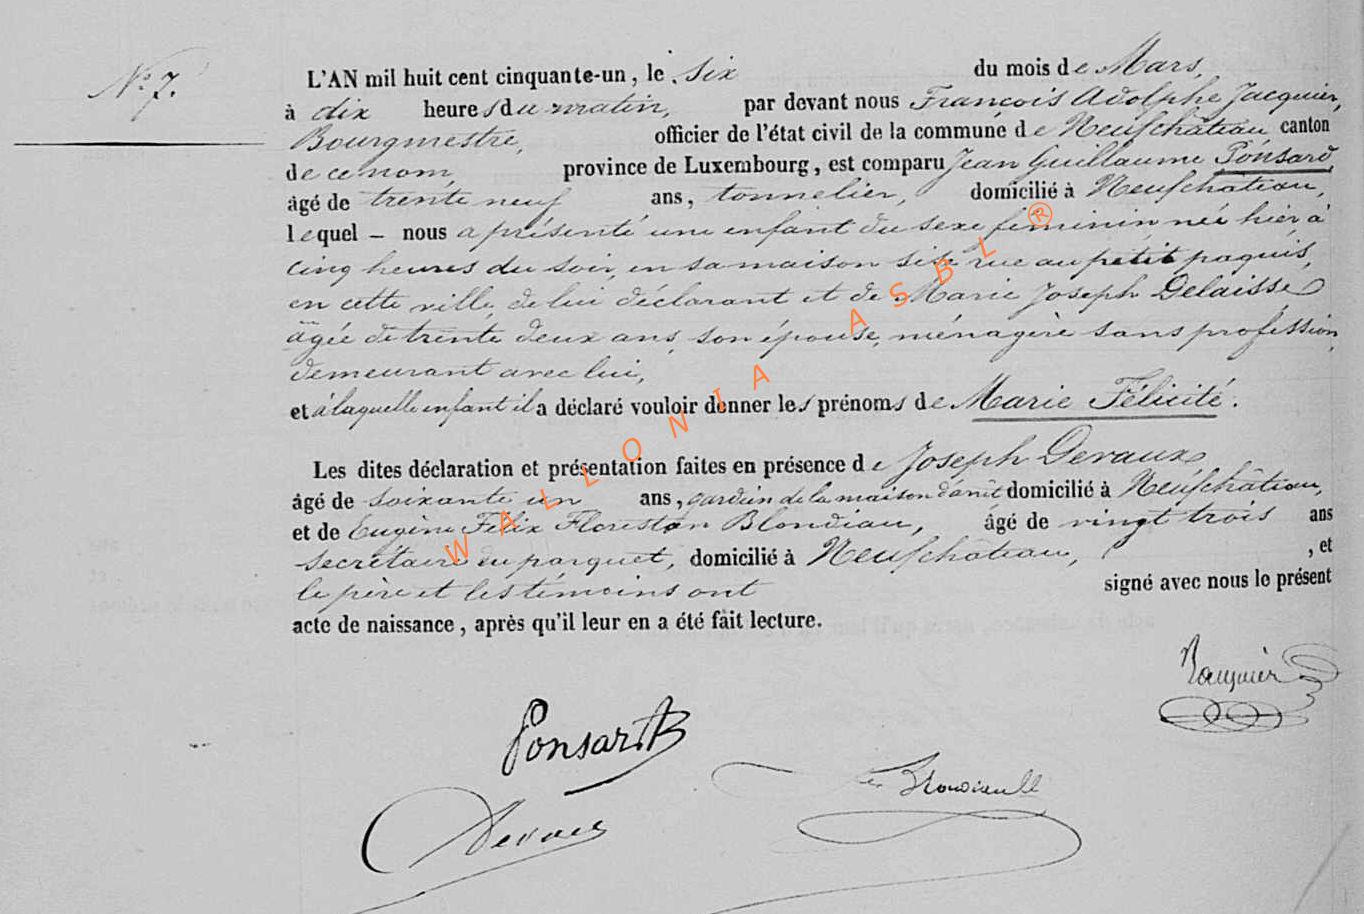 N.º 7.
L'AN mil huit cent cinquante-un, le six du mois de Mars,
à dix heures du matin, par devant nous François Adolphe Jacquier,
Bourgmestre, officier de l'état civil de la commune de Neufchâteau canton
de ce nom, province de Luxembourg, est comparu Jean Guillaume Ponsard
âgé de trente neuf ans, tonnelier, domicilié à Neufchâteau,
lequel – nous a présenté une enfant du sexe féminin née hier à
cinq heures du soir, en sa maison sise rue au petit paquis,
en cette ville, de lui déclarant et de Marie Joseph Delaisse
âgée de trente deux ans, son épouse, ménagère sans profession,
demeurant avec lui,
et à laquelle enfant il a déclaré vouloir donner les prénoms de Marie Félicité.
Les dites déclaration et présentation faites en présence de Joseph Devaux
âgé de soixante un ans, gardien de la maison d'arrêt domicilié à Neufchâteau,
et de Eugène Félix Florestan Blondiau, âgé de vingt trois ans
secrétaire du parquet, domicilié à Neufchâteau, , et
le père et les témoins ont signé avec nous le présent
acte de naissance, après qu'il leur en a été fait lecture.
WALLONIA ASBL ®
Jacquier
Ponsard
Blondiau
Devaux